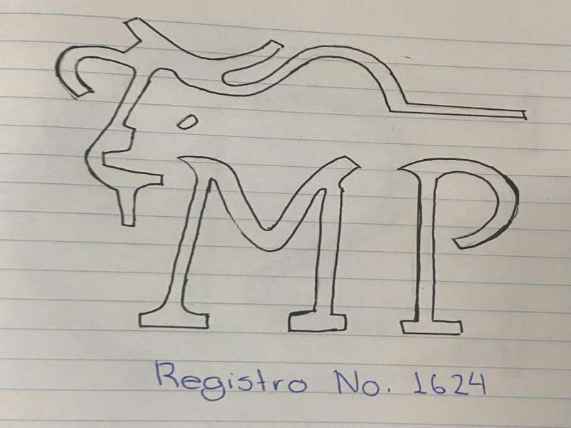 MP
Registro No. 1624